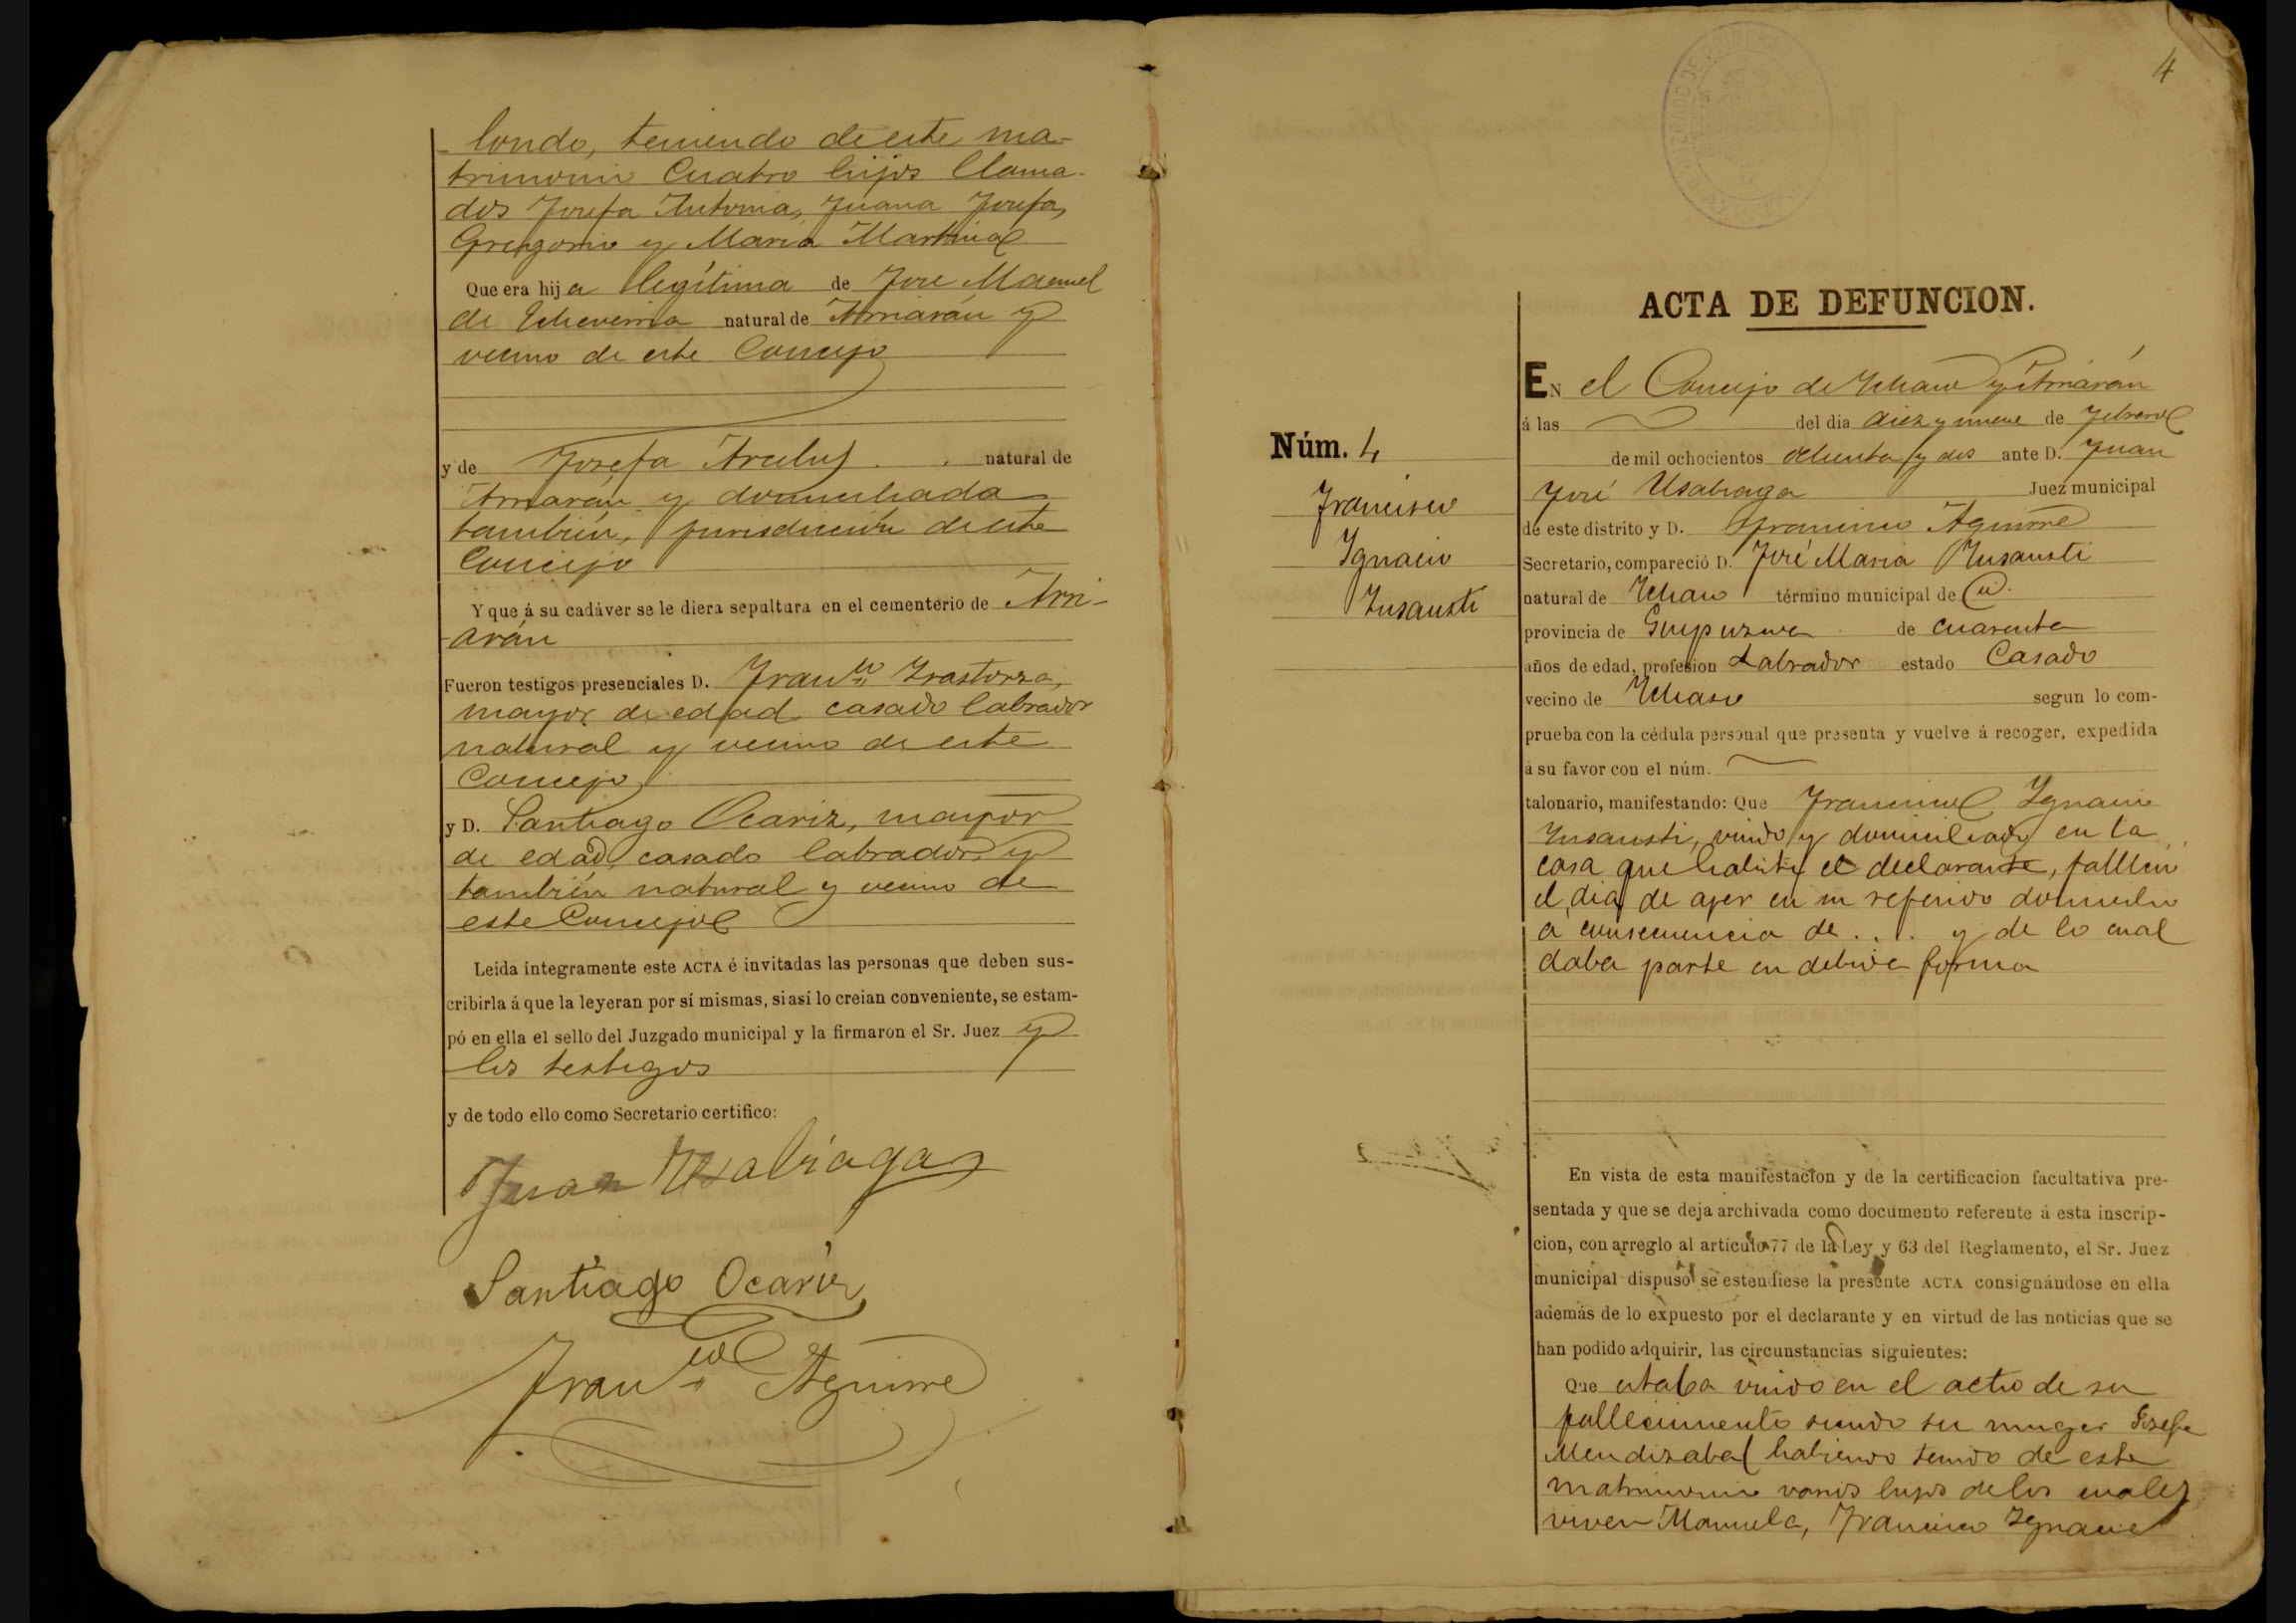 londo, teniendo de este ma-
trimonio Cuatro hijos llama-
dos Josefa Antonia, Juana Josefa,
Gregorio y Maria Martina
Que era hija legítima de Jose Manuel
de Echeverria natural de Arriarán y
vecino de este Concejo
y de Josefa Aralus natural de
Arriarán y domiciliada
también, jurisdicción de este
Concejo
Y que á su cadáver se le diera sepultura en el cementerio de Arri-
arán
Fueron testigos presenciales D. Franco Irastorza,
mayor de edad casado labrador
natural y vecino de este
Concejo
y D. Santiago Ocariz, mayor
de edad, casado labrador, y
también natural y vecino de
este Concejo
Leida íntegramente este ACTA é invitadas las personas que deben sus-
cribirla á que la leyeran por sí mismas, si así lo creian conveniente, se estam-
pó en ella el sello del Juzgado municipal y la firmaron el Sr. Juez y
los testigos
y de todo ello como Secretario certifico:
Juan Usabiaga
Santiago Ocariz
Franco Aguirre
4
ACTA DE DEFUNCION.
Núm. 4
Francisco
Ignacio
Insausti
EN el Concejo de Ichaso y Arriarán
á las del dia diez y nueve de Febrero
de mil ochocientos ochenta y dos ante D. Juan
José Usabiaga Juez municipal
de este distrito y D. Francisco Aguirre
Secretario, compareció D. José Maria Insausti
natural de Ichaso término municipal de id.
provincia de Guipuzcoa de cuarenta
años de edad, profesion Labrador estado Casado
vecino de Ichaso segun lo com-
prueba con la cédula personal que presenta y vuelve á recoger, expedida
á su favor con el núm.
talonario, manifestando: Que Francisco Ignacio
Insausti, viudo y domiciliado en la
casa que habita el declarante, falleció
el dia de ayer en su referido domicilio
a consecuencia de . . . y de lo cual
daba parte en debida forma
En vista de esta manifestacion y de la certificacion facultativa pre-
sentada y que se deja archivada como documento referente á esta inscrip-
cion, con arreglo al artículo 77 de la Ley y 63 del Reglamento, el Sr. Juez
municipal dispuso se estendiese la presente ACTA consignándose en ella
además de lo expuesto por el declarante y en virtud de las noticias que se
han podido adquirir, las circunstancias siguientes:
Que estaba viudo en el acto de su
fallecimiento siendo su muger Josefa
Mendizabal habiendo tenido de este
matrimonio varios hijos de los cuales
viven Manuela, Francisco Ignacio